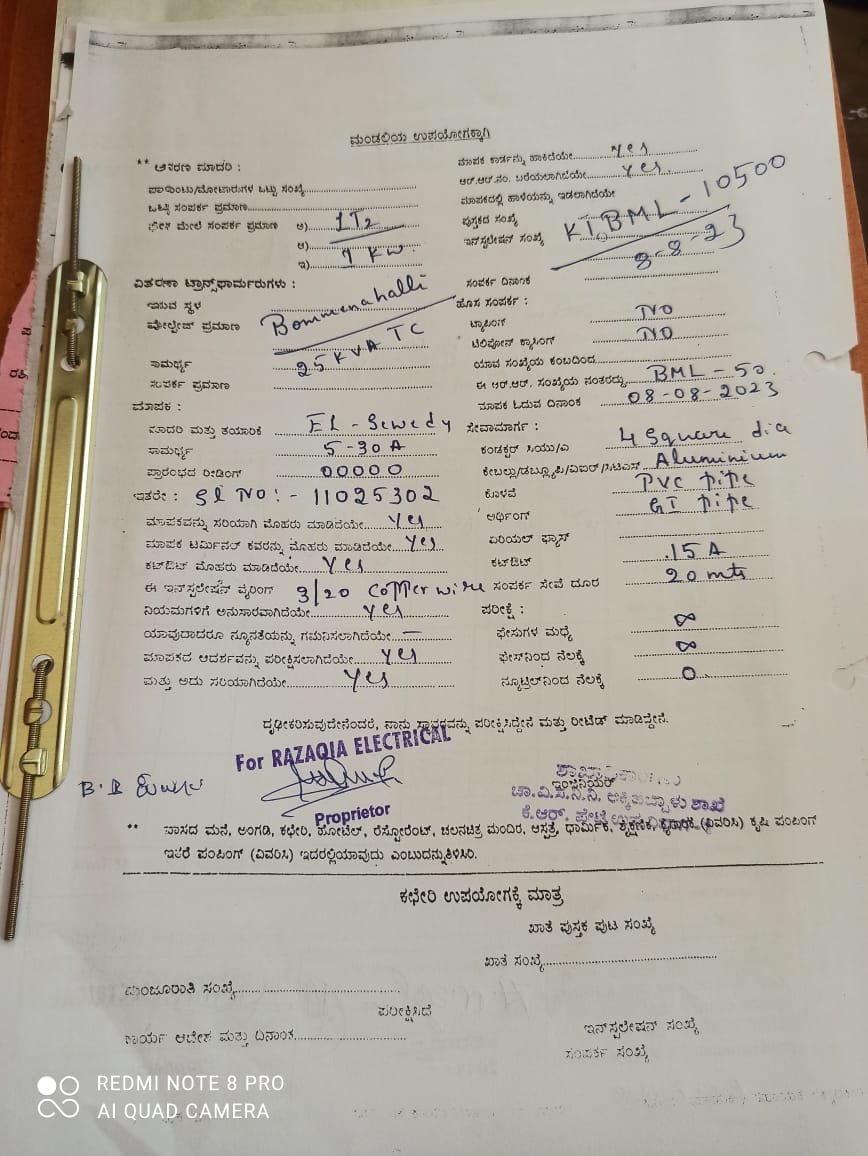 ಮಂಡಲಿಯ ಉಪಯೋಗಕ್ಕಾಗಿ
** ಆವರಣ ಮಾದರಿ :
ಪಾಯಿಂಟು/ಮೋಟಾರುಗಳ ಒಟ್ಟು ಸಂಖ್ಯೆ
ಒಟ್ಟು ಸಂಪರ್ಕ ಪ್ರಮಾಣ
ಮೇಲೆ ಸಂಪರ್ಕ ಪ್ರಮಾಣ ಅ) LT2
ಆ) 1 KW.
ಇ)
ವಿತರಣಾ ಟ್ರಾನ್ಸ್‌ಫಾರ್ಮರುಗಳು :
ಇರುವ ಸ್ಥಳ Bommenahalli
ವೋಲ್ಟೇಜ್ ಪ್ರಮಾಣ
ಸಾಮರ್ಥ್ಯ 25 KVA TC
ಸಂಪರ್ಕ ಪ್ರಮಾಣ
ಮಾಪಕ :
ಮಾದರಿ ಮತ್ತು ತಯಾರಿಕೆ EL - Sewedy
ಸಾಮರ್ಥ್ಯ 5-30 A
ಪ್ರಾರಂಭದ ರೀಡಿಂಗ್ 00000
ಇತರೇ : Sl No :- 11025302
ಮಾಪಕವನ್ನು ಸರಿಯಾಗಿ ಮೊಹರು ಮಾಡಿದೆಯೇ Yes
ಮಾಪಕ ಟರ್ಮಿನಲ್ ಕವರನ್ನು ಮೊಹರು ಮಾಡಿದೆಯೇ Yes
ಕಟ್‌ಔಟ್ ಮೊಹರು ಮಾಡಿದೆಯೇ Yes
ಈ ಇನ್‌ಸ್ಟಲೇಷನ್ ವೈರಿಂಗ್ 3/20 Copper wire
ನಿಯಮಗಳಿಗೆ ಅನುಸಾರವಾಗಿದೆಯೇ Yes
ಯಾವುದಾದರೂ ನ್ಯೂನತೆಯನ್ನು ಗಮನಿಸಲಾಗಿದೆಯೇ —
ಮಾಪಕದ ಆದರ್ಶವನ್ನು ಪರೀಕ್ಷಿಸಲಾಗಿದೆಯೇ Yes
ಮತ್ತು ಅದು ಸರಿಯಾಗಿದೆಯೇ Yes
ಮಾಪಕ ಕಾರ್ಡನ್ನು ಹಾಕಿದೆಯೇ Yes
ಆರ್.ಆರ್.ನಂ. ಬರೆಯಲಾಗಿದೆಯೇ Yes
ಮಾಪಕದಲ್ಲಿ ಹಾಳೆಯನ್ನು ಇಡಲಾಗಿದೆಯೇ
ಪುಸ್ತಕದ ಸಂಖ್ಯೆ
ಇನ್‌ಸ್ಟಲೇಷನ್ ಸಂಖ್ಯೆ KLBML - 10500
ಸಂಪರ್ಕ ದಿನಾಂಕ 8-8-23
ಹೊಸ ಸಂಪರ್ಕ :
ಟ್ಯಾಪಿಂಗ್ NO
ಟೆಲಿಫೋನ್ ಕ್ರಾಸಿಂಗ್ NO
ಯಾವ ಸಂಖ್ಯೆಯ ಕಂಬದಿಂದ
ಈ ಆರ್.ಆರ್. ಸಂಖ್ಯೆಯ ನಂತರದ್ದು BML - 50.
ಮಾಪಕ ಓದುವ ದಿನಾಂಕ 08-08-2023
ಸೇವಾಮಾರ್ಗ :
ಕಂಡಕ್ಟರ್ ಸಿಯು/ಎ 4 Square dia
ಕೇಬಲ್ಲು/ಡಬ್ಲ್ಯೂಪಿ/ವಿಐಆರ್ Aluminium
ಕೊಳವೆ PVC pipe
ಅರ್ಥಿಂಗ್ GI pipe
ಏರಿಯಲ್ ಫ್ಯೂಸ್
ಕಟ್‌ಔಟ್ 15 A
ಸಂಪರ್ಕ ಸೇವೆ ದೂರ 20 mts
ಪರೀಕ್ಷೆ :
ಫೇಸುಗಳ ಮಧ್ಯೆ ∞
ಫೇಸ್‌ನಿಂದ ನೆಲಕ್ಕೆ ∞
ನ್ಯೂಟ್ರಲ್‌ನಿಂದ ನೆಲಕ್ಕೆ 0
ದೃಢೀಕರಿಸುವುದೇನೆಂದರೆ, ನಾನು ಸ್ಥಾವರವನ್ನು ಪರೀಕ್ಷಿಸಿದ್ದೇನೆ ಮತ್ತು ರೀಟೆಡ್ ಮಾಡಿದ್ದೇನೆ.
For RAZAQIA ELECTRICAL
Proprietor
ಇಂಜಿನಿಯರ್
ಚಾ.ವಿ.ಸ.ನಿ.ನಿ, ಅಕ್ಕಿಹೆಬ್ಬಾಳು ಶಾಖೆ
ಕೆ.ಆರ್. ಪೇಟೆ
** ವಾಸದ ಮನೆ, ಅಂಗಡಿ, ಕಛೇರಿ, ಹೋಟೆಲ್, ರೆಸ್ಟೋರೆಂಟ್, ಚಲನಚಿತ್ರ ಮಂದಿರ, ಆಸ್ಪತ್ರೆ, ಧಾರ್ಮಿಕ, ಶೈಕ್ಷಣಿಕ, (ವಿವರಿಸಿ) ಕೃಷಿ ಪಂಪಿಂಗ್
ಇತರೆ ಪಂಪಿಂಗ್ (ವಿವರಿಸಿ) ಇದರಲ್ಲಿಯಾವುದು ಎಂಬುದನ್ನುತಿಳಿಸಿರಿ.
ಕಛೇರಿ ಉಪಯೋಗಕ್ಕೆ ಮಾತ್ರ
ಖಾತೆ ಪುಸ್ತಕ ಪುಟ ಸಂಖ್ಯೆ
ಖಾತೆ ಸಂಖ್ಯೆ
ಮಂಜೂರಾತಿ ಸಂಖ್ಯೆ
ಪರೀಕ್ಷಿಸಿದೆ
ಕಾರ್ಯ ಆದೇಶ ಮತ್ತು ದಿನಾಂಕ
ಇನ್‌ಸ್ಟಲೇಷನ್ ಸಂಖ್ಯೆ
ಸಂಪರ್ಕ ಸಂಖ್ಯೆ
REDMI NOTE 8 PRO
AI QUAD CAMERA